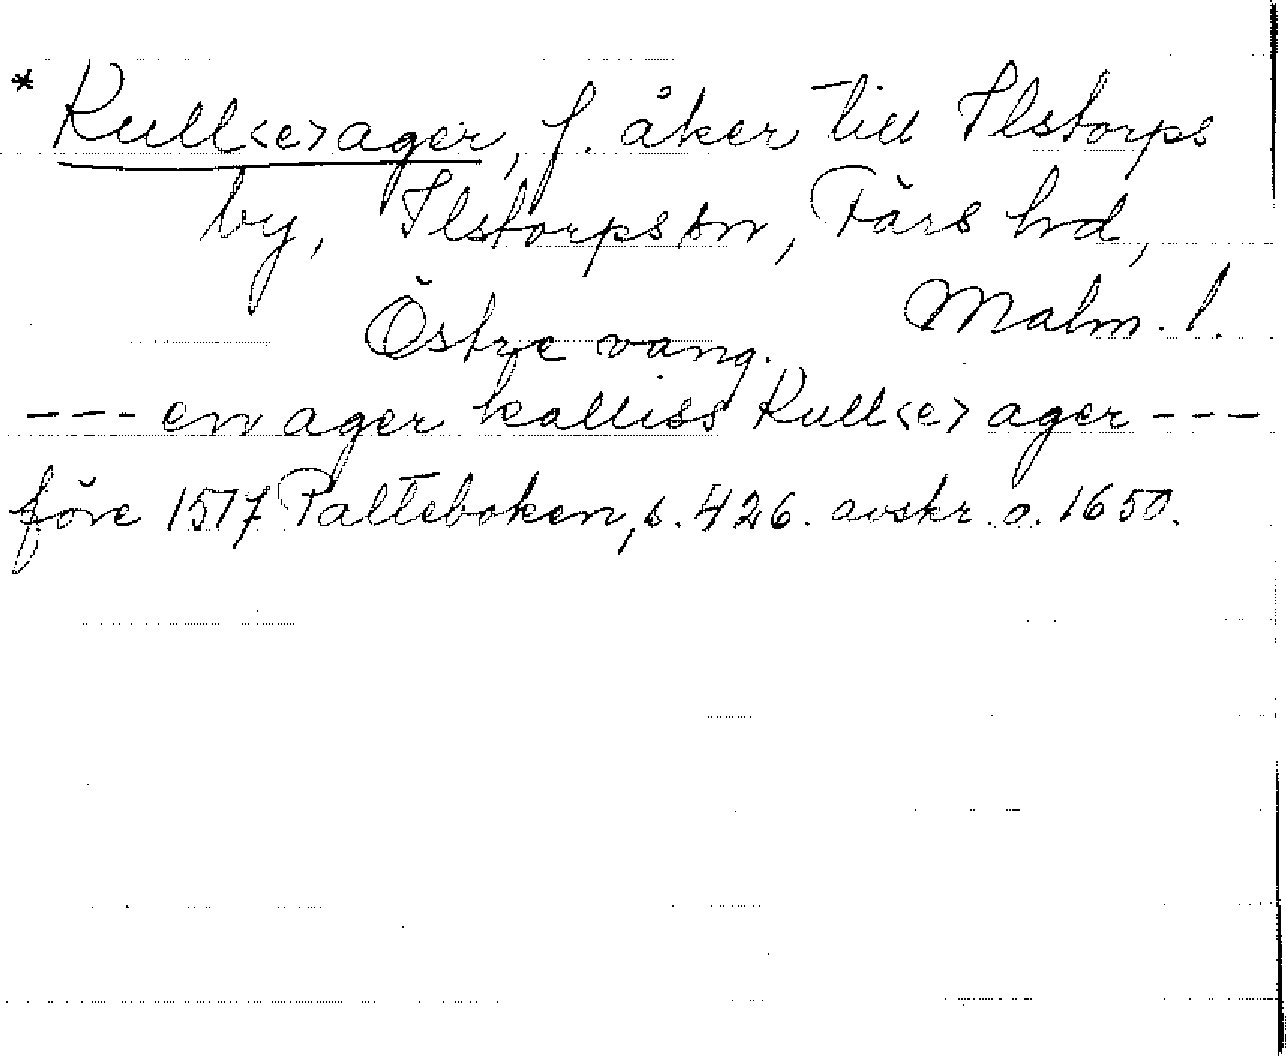 * Kull<e>ager, f. åker till Ilstorps
by, Ilstorps sn, Färs hd,
Malm. l.
Östre vang.
--- en ager kalliss Kull<e>ager ---
före 1517 Palteboken, s. 426. avskr. o. 1650.